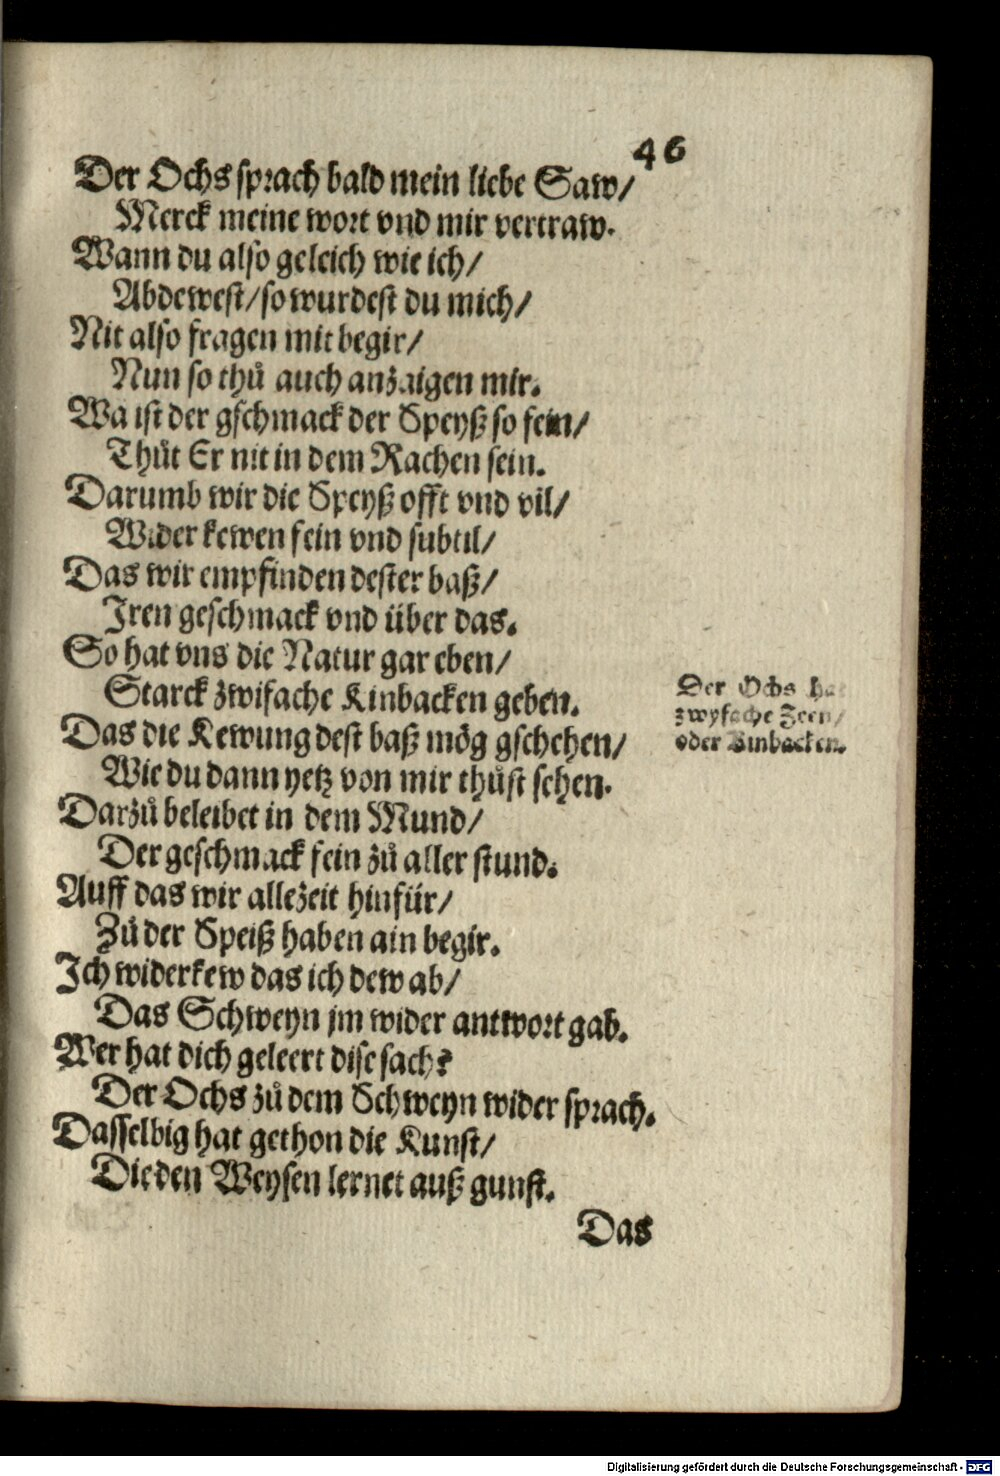 46
Der Ochs sprach bald mein liebe Saw/
Merck meine wort vnd mir vertraw.
Wann du also geleich wie ich/
Abdewest/so wurdest du mich/
Nit also fragen mit begir/
Nun so thů auch anzaigen mir.
Wa ist der gschmack der Speyß so fein/
Thůt Er nit in dem Rachen sein.
Darumb wir die Speyß offt vnd vil/
Wider kewen fein vnd subtil/
Das wir empfinden dester baß/
Iren geschmack vnd über das.
So hat vns die Natur gar eben/
Starck zwifache Kinbacken geben.
Das die Kewung dest baß mög gschehen/
Wie du dann yetz von mir thůst sehen.
Darzů beleibet in dem Mund/
Der geschmack fein zů aller stund.
Auff das wir allezeit hinfür/
Zů der Speiß haben ain begir.
Ich widerkew das ich dew ab/
Das Schweyn jm wider antwort gab.
Wer hat dich geleert dise sach?
Der Ochs zů dem Schweyn wider sprach.
Dasselbig hat gethon die Kunst/
Die den Weysen lernet auß gunst.
Das
Der Ochs hat
zwyfache Zeen/
oder Kinbacken.
Digitalisierung gefördert durch die Deutsche Forschungsgemeinschaft - DFG